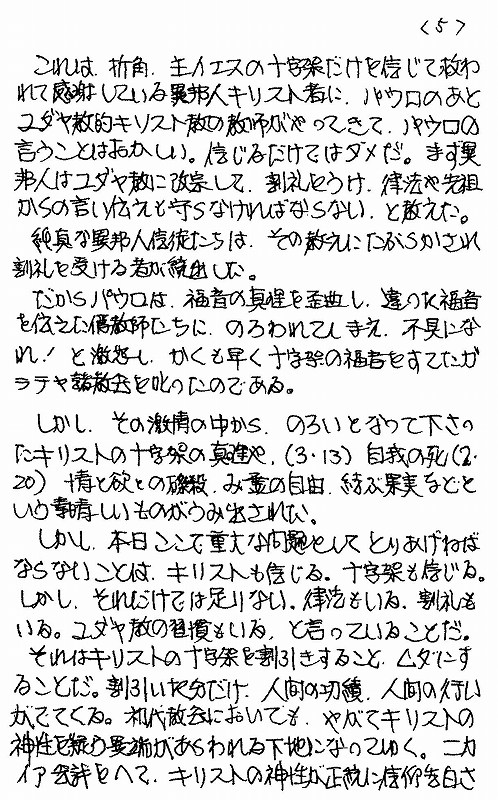 (5)
これは、折角、主イエスの十字架だけを信じて救わ
れて感謝している異邦人キリスト者に、パウロのあと
ユダヤ教的キリスト教の教師がやってきて、パウロの
言うことはおかしい。信じるだけではダメだ。まず異
邦人はユダヤ教に改宗して、割礼をうけ、律法や先祖
からの言い伝えも守らなければならない、と教えた。
純真な異邦人信徒たちは、その教えにたぶらかされ
割礼を受ける者が続出した。
だからパウロは、福音の真理を歪曲し、違った福音
を伝えた偽教師たちに、のろわれてしまえ、不具にな
れ!と激怒し、かくも早く十字架の福音をすてたガ
ラテヤ諸教会を叱ったのである。
しかし、その激情の中から、のろいとなって下さっ
たキリストの十字架の真理や、(3・13) 自我の死(2・
20) 情と欲との磔殺、み霊の自由、結ぶ果実などと
いう素晴しいものがうみ出された。
しかし、本日ここで重大な問題としてとりあげねば
ならないことは、キリストも信じる。十字架も信じる。
しかし、それだけでは足りない。律法もいる、割礼も
いる。ユダヤ教の習慣もいる、と言っていることだ。
それはキリストの十字架を割引きすること、ムダにす
ることだ。割引いた分だけ、人間の功績、人間の行い
がでてくる。初代教会においても、やがてキリストの
神性を疑う異端があらわれる下地になってゆく。ニカ
イア会議をへて、キリストの神性が正統に信仰告白さ